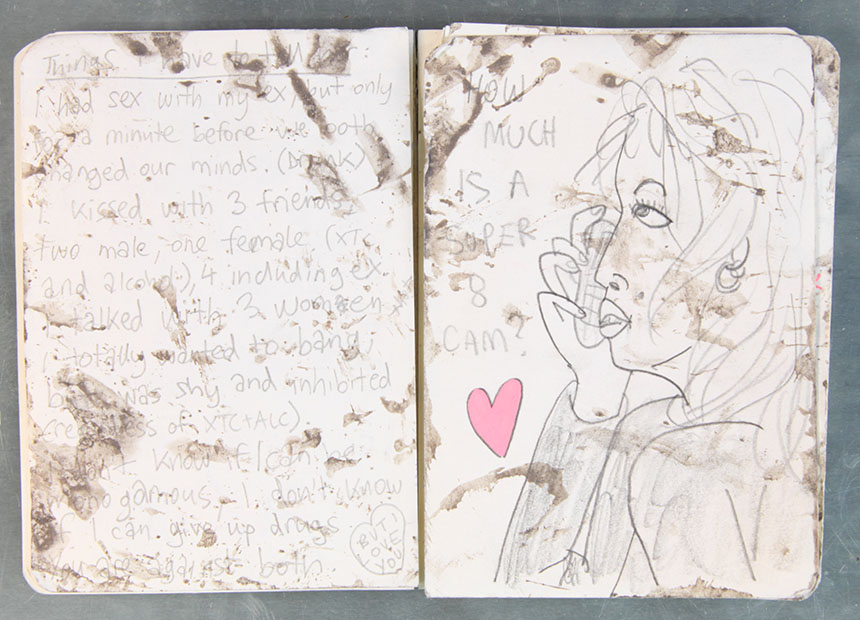 Things I have to tell
I had sex with my ex, but only
for a minute before we both
changed our minds. (Drunk)
I kissed with 3 friends,
two male, one female (XTC
and alcohol), 4 including ex.
I talked with 3 women
I totally wanted to bang,
but was shy and inhibited
(regardless of XTC+ALC)
I don't know if I can be
monogamous. I don't know
if I can give up drugs
You are against both
BUT I
LOVE
YOU
HOW
MUCH
IS A
SUPER
8
CAM?